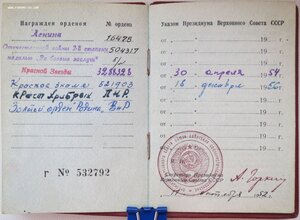 Награжден орденом № ордена
Ленина 16478
Отечественной войны 2й степени 504317
медалью "За боевые заслуги" б/н
Красной Звезды 3288328
Красное знамя 521903
Крест Храбрых П.Н.Р.
Золотой орден "Родина, ВНР"
г № 532792
Указом Президиума Верховного Совета СССР
от 195 г.
от 195 г.
от 195 г.
от 30 апреля 1954 г.
от 18 декабря 1956 г.
от 195 г.
от 195 г.
Секретарь Президиума
Верховного Совета СССР
А. Горкин
1952 г.